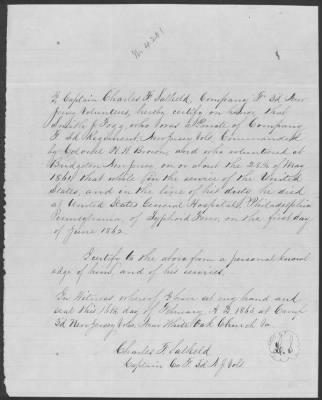 I Captain Charles F. Salkeld, Company F 3d New
Jersey Volunteers, hereby certify on honor, that
Smith J. Fogg, who was a Private of Company
F 3d Regiment, New Jersey Vols, Commanded
by Colonel H. W. Brown, and who volunteered at
Bridgeton New Jersey, on or about the 28th of May
1861 that while in the service of the United
States, and in the line of his duty, he died
at United States General Hospital, Philadelphia
Pennsylvania, of Typhoid Fever, on the first day
of June 1862.
I certify to the above from a personal knowl
edge of him, and of his services.
In Witness whereof I have set my hand and
seal this 16th day of February A. D. 1863 at Camp
3d New Jersey Vols. Near White Oak Church Va.
Charles F. Salkeld
Captain Co F. 3d N J Vols
L. S